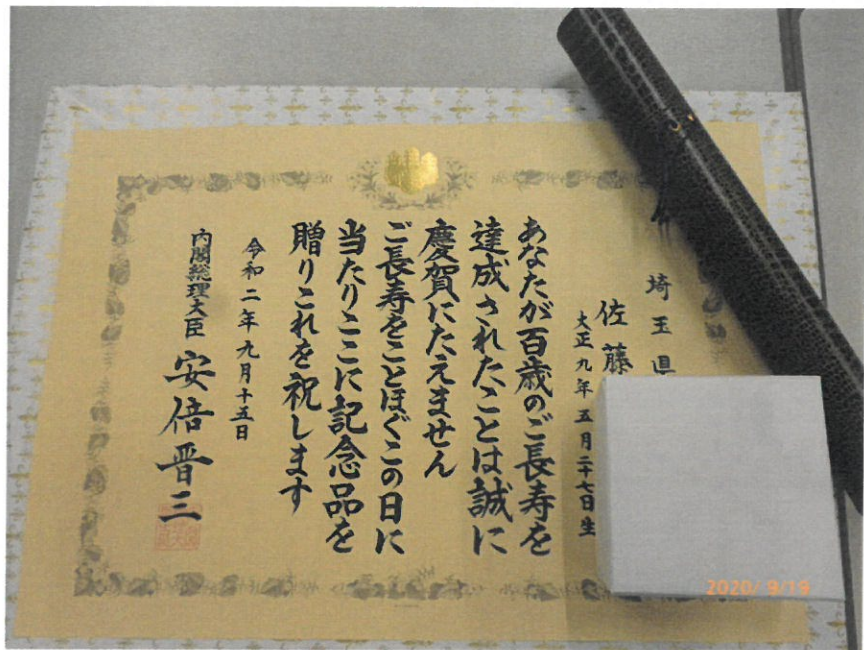 埼玉県
佐藤
大正九年五月二十七日生
あなたが百歳のご長寿を
達成されたことは誠に
慶賀にたえません
ご長寿をことほぐこの日に
当たりここに記念品を
贈りこれを祝します
令和二年九月十五日
内閣総理大臣 安倍晋三
2020/ 9/19